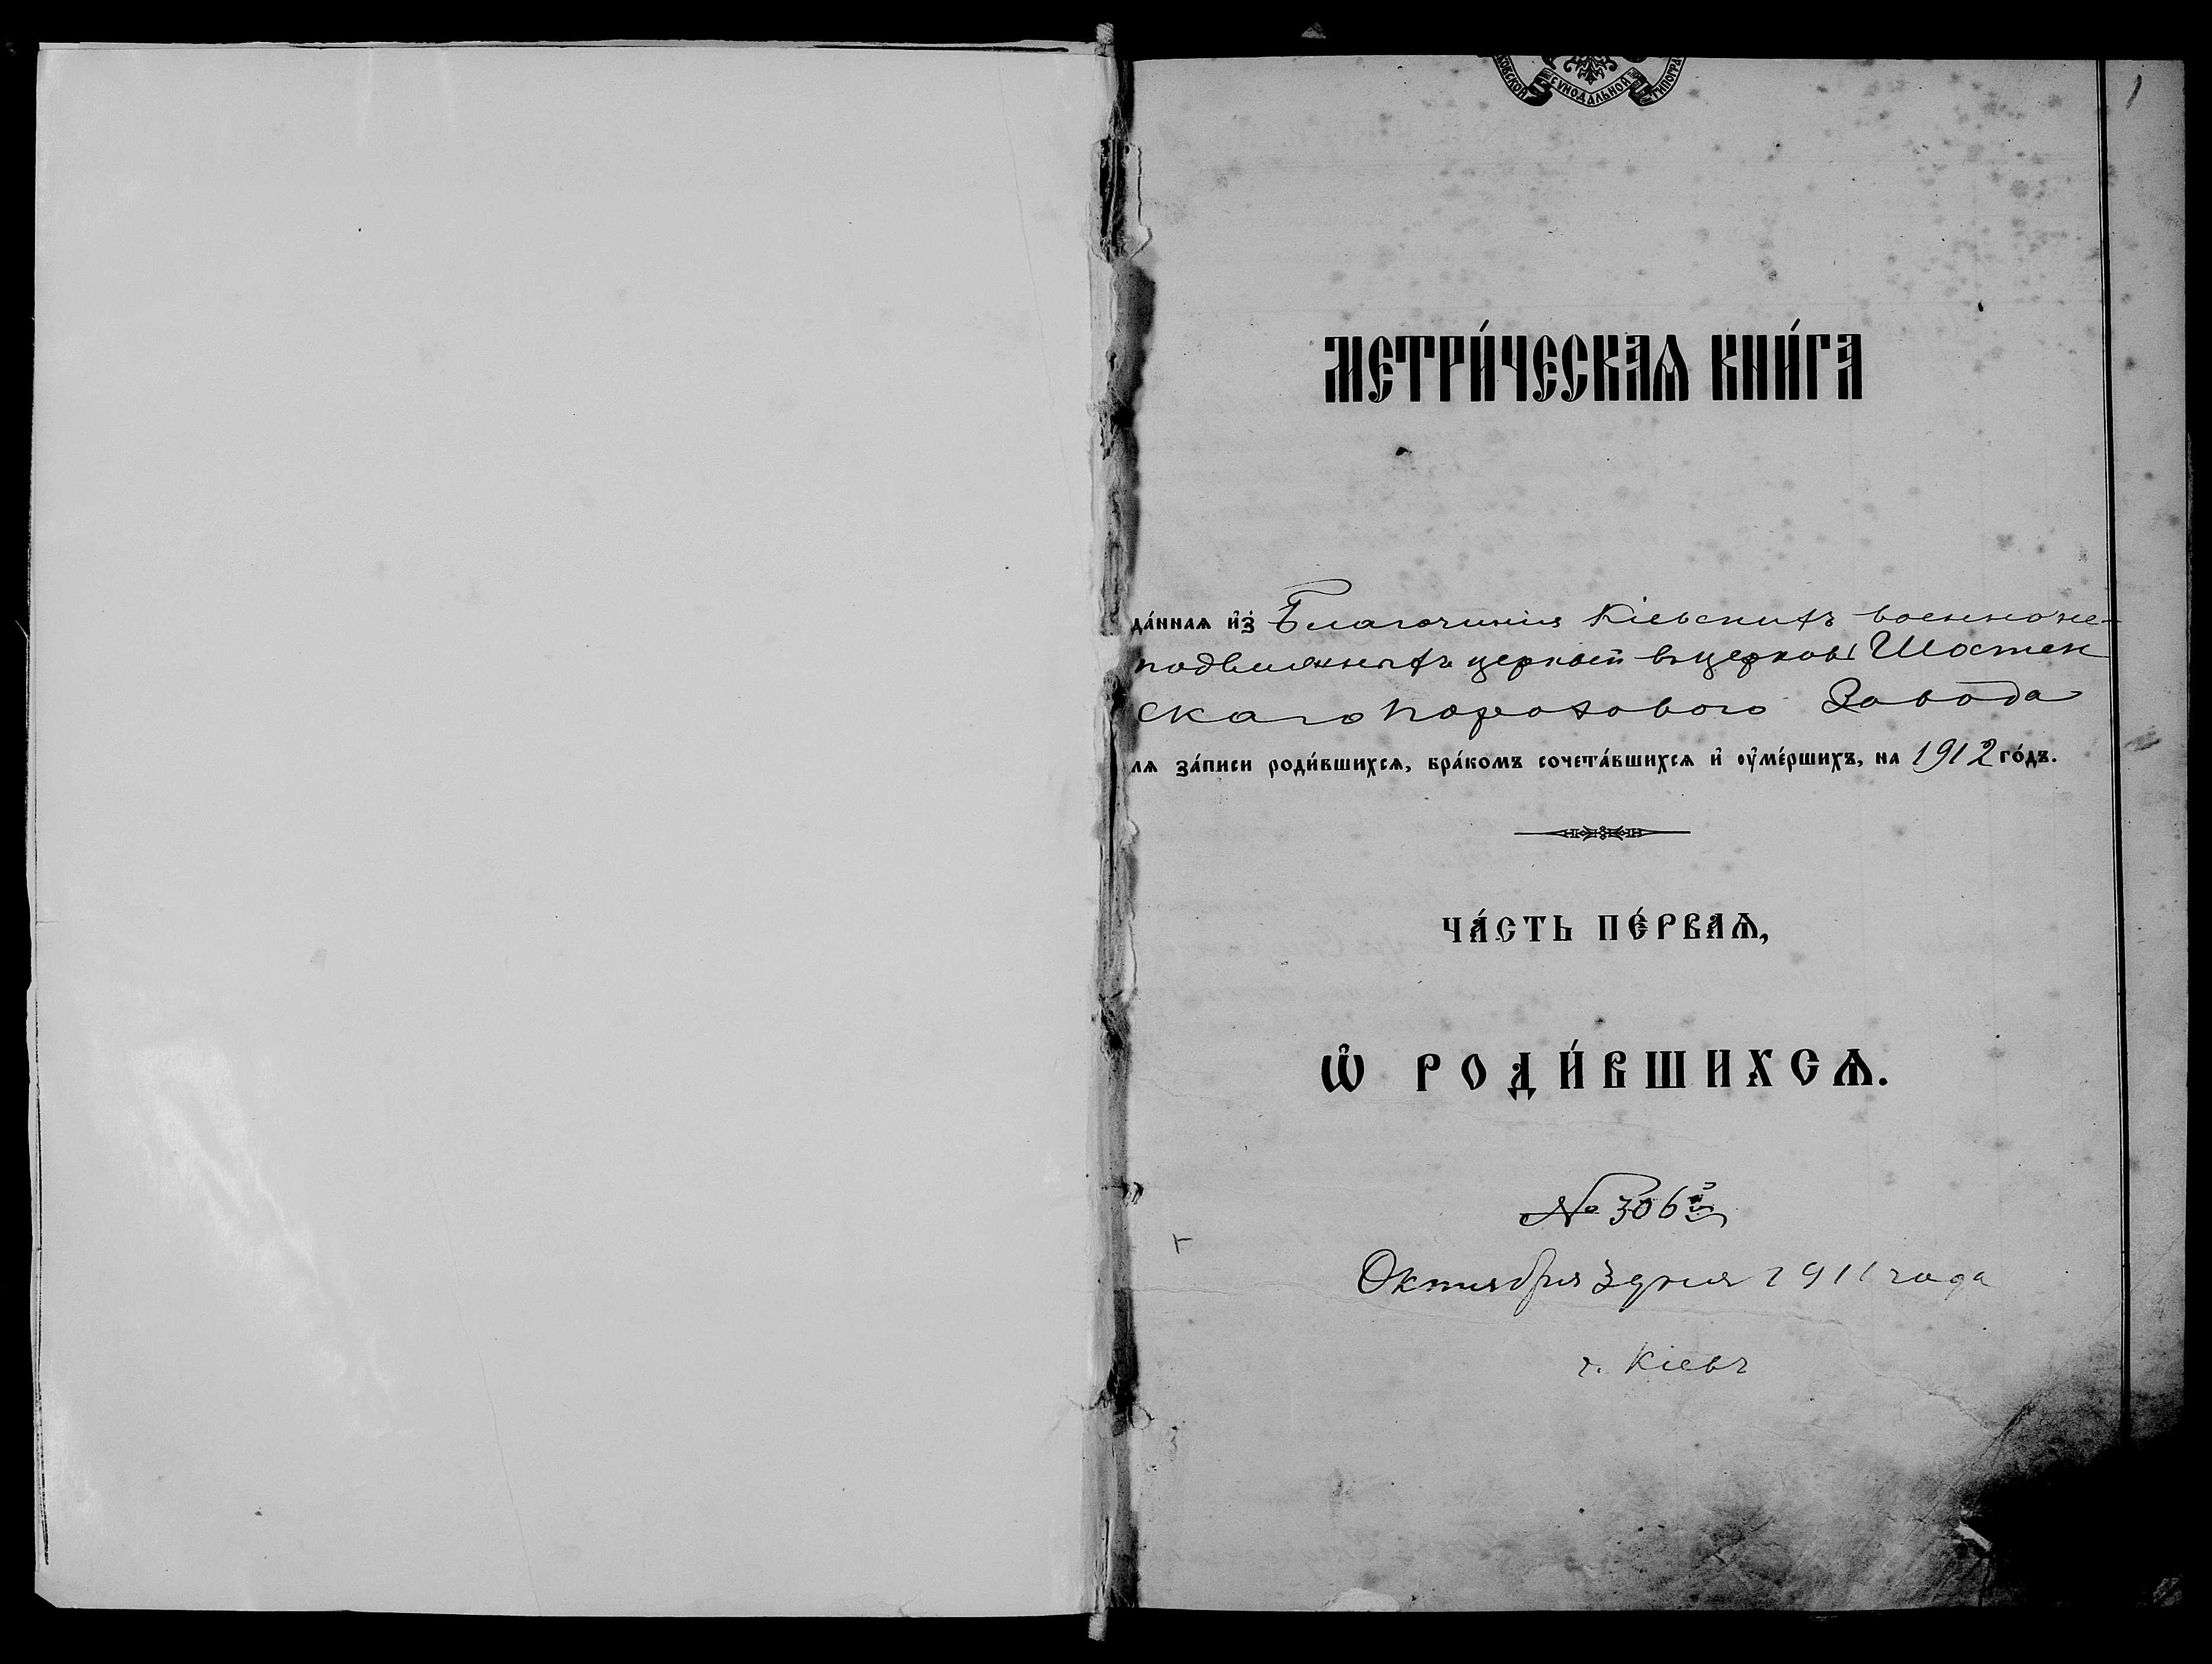 СѴНОДАЛЬНОЙ
1
МЕТРИ́ЧЕСКАѦ КНИ́ГА
да́ннаѧ и҆з̾ Благочинія Кіевскихъ военно не-
подвижныхъ церквей въ церковь Шостен
скаго порохового Завода
лѧ за́писи роди́вшихсѧ, бра́комъ сочета́вшихсѧ и҆ ᲂу҆ме́ршихъ, на 1912 го́дъ.
ЧА́СТЬ ПЕ́РВАѦ,
Ѡ҆ РОДИ́ВШИХСѦ.
№ 306
Октября 3 дня 1911 года
г. Кіевъ